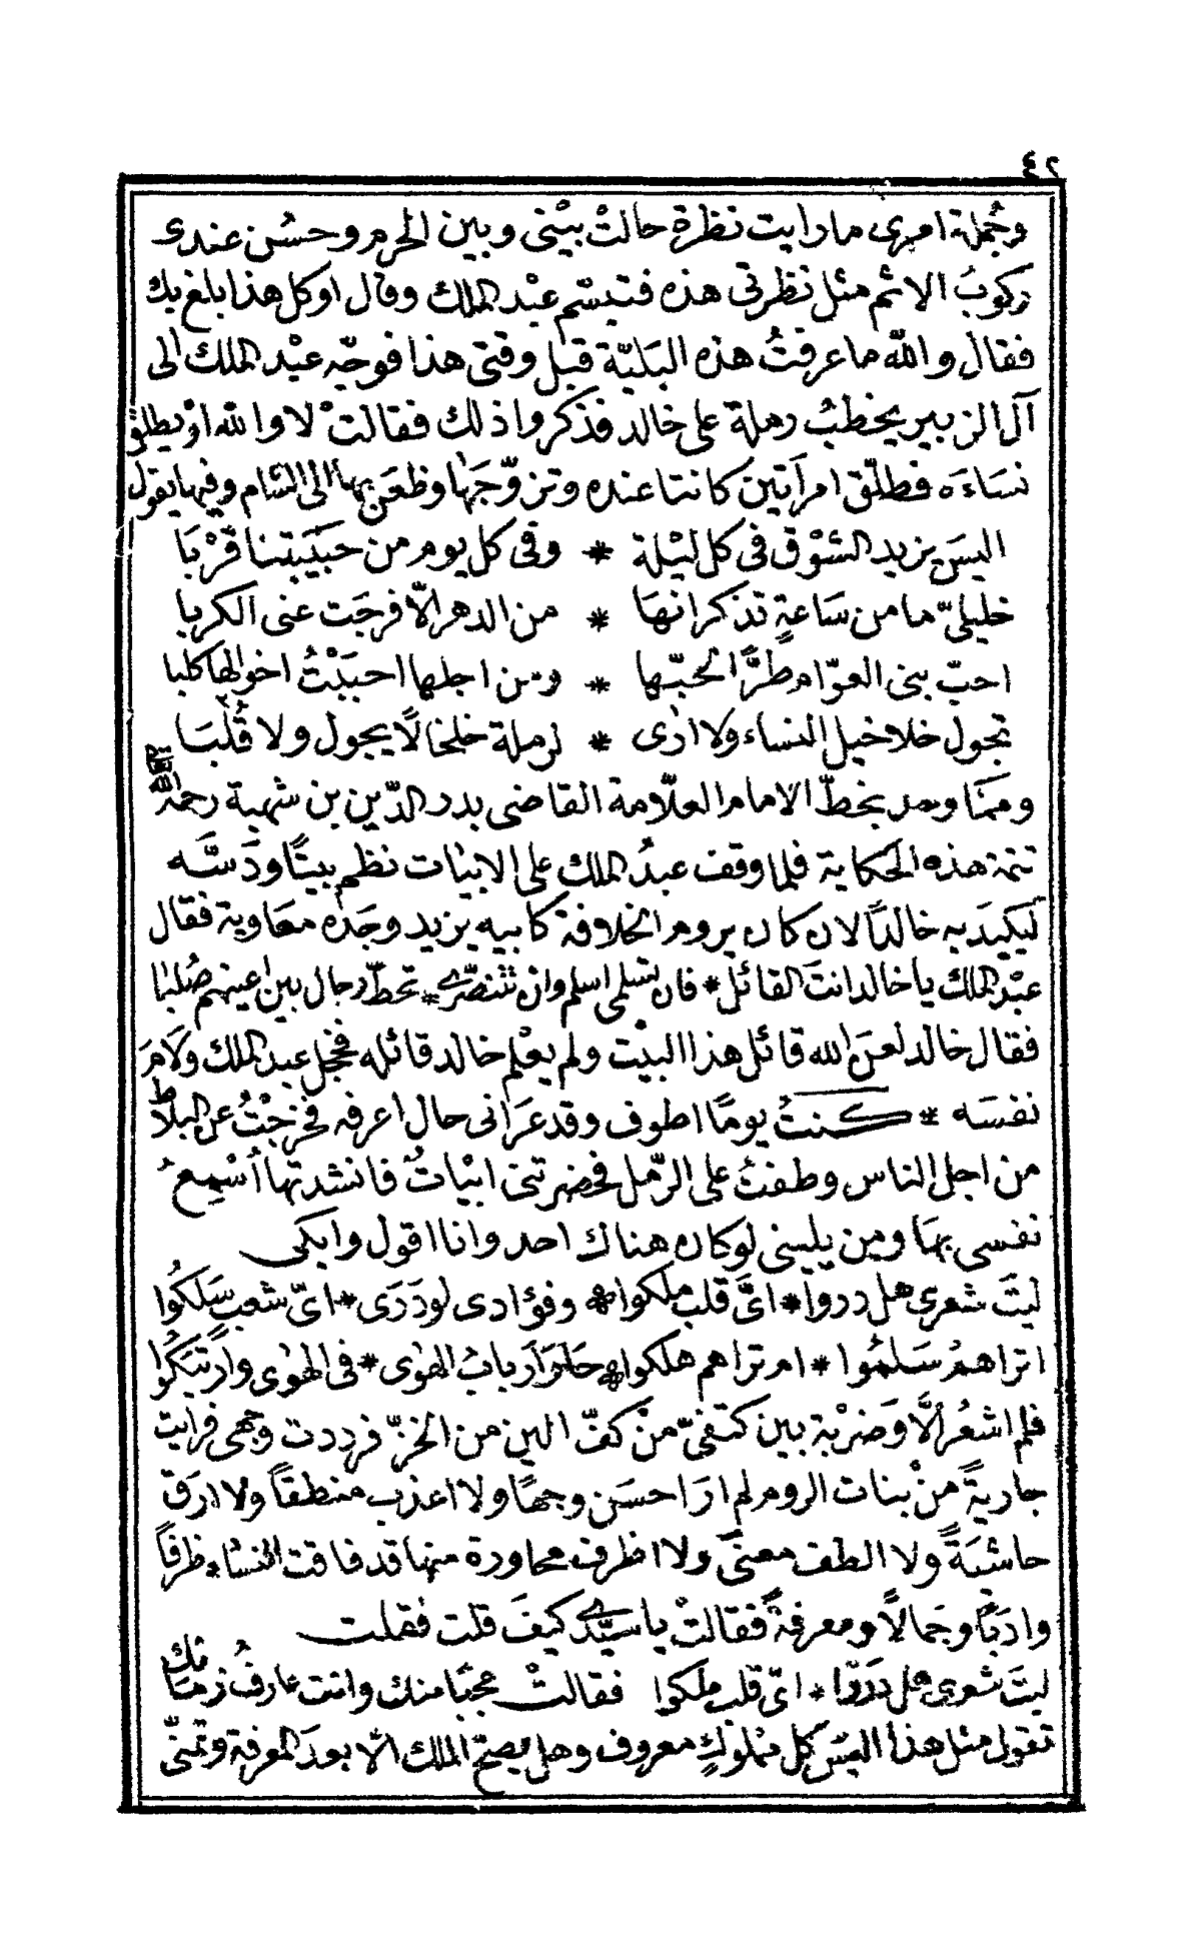 ٤٢
وجُملة امرى ما رايت نظرة حالتْ بيْنى وبين الحرم وحسُن عندى
ركوبُ الاثم مثل نظرتى هذه فتبسّم عبْد الملك وقال اوكل هذا بلغ بك
فقال والله ما عرفتُ هذه البَليّة قبْل وقتى هذا فوجّه عبْد الملك الى
آل الزبير يخطبُ رملة على خالد فذكروا ذلك فقالتْ لا والله اوْ يطلق
نسَاءَه فطلّق امرأتين كانتا عنده وتزوّجَها وظعَن بها الى الشام وفيها يقول
اليسَ يزيد الشوْق فى كل ليْلة * وفى كل يوم من حبيَبتنا قرْبَا
خليليّ ما من سَاعةٍ تذكرانهَا * من الدهر الاّ فرجَت عنى الكربا
احبّ بنى العوّام طرًّا لحبّها * ومن اجلها احببْتُ اخوالها كلبا
تجول خلاخيل النساء ولا ارى * لرملة خلخالاً يجول ولا قُلْبَا
وممّا وجد بخطّ الامام العلاّمة القاضى بدر الدّين بن شهبة رحمه الله تعالى
تتمة هذه الحكاية فلما وقف عبدُ الملك على الابيات نظم بيتًا ودَسَّه
ليَكيدَ به خالداً لان كان يروم الخلافة كابيه يزيد وجَده معَاوية فقال
عبْد الملك يا خالد انتَ القائل * فان تسلمى اسلم وان تتنصّرى * تحطّ رجال بين اعينهم صُلبَا
فقال خالد لعنَ الله قائل هذا البيْت ولم يعْلم خالد قائله فخجل عبد الملك ولامَ
نفسَه * كنتُ يومًا اطوف وقد عَرَانى حال اعرفه فخرجْتُ عن البلاط
من اجل الناس وطفتُ على الرّمل فحضرتنى ابْياتٌ فانشدتها اُسْمِعُ
نفسى بهَا ومن يلينى لو كان هناك احد وانا اقول وابكى
ليتَ شعرى هل دروا * اىَّ قلب ملكوا * وفؤادى لودَرَى * اىّ شعب سَلكُوا
اتراهمُ سَلمُوا * ام تراهم هلكوا * حَارَ اَرباب الهوٰى * فى الهوٰى وارتبَكُوا
فلم اشعُر الاَّ وَضربْة بين كتفىّ منْ كفّ الين من الخزّ فرددت وجهى فرايت
جاريةً منْ بنات الروم لم ارَ احسَن وجهًا ولا اعذب منطقاً ولا ارَق
حاشيَةً ولا الطف معنىً ولا اظرف محاورة منها قد فاقت النسَاء ظرفاً
وادبًا وجَمالاً ومعرفةً فقالتْ يا سيّدى كيفَ قلت فقلت
ليتَ شعرى هل دَرَوْا * اىّ قلب ملكوا فقالتْ عجبًا منك وانت عارفُ زمَانك
تقول مثل هذا اليسَ كل مملوكٍ معروف وهل يصحّ الملك الاّ بعدَ المعرفة وتمنّى